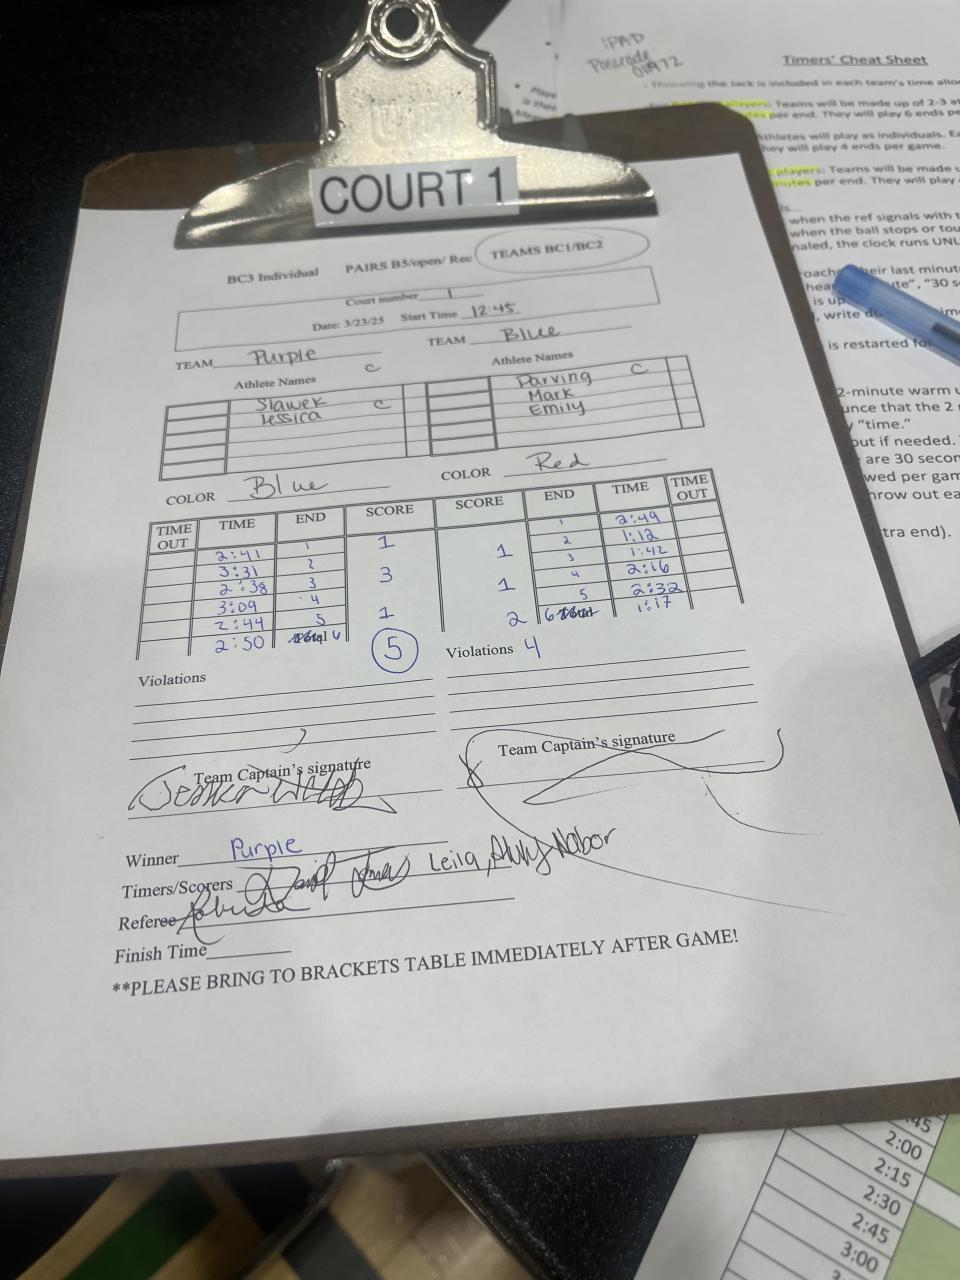 IPAD
Passcode
01972
Timers' Cheat Sheet
the jack is included in each team's time allo
players: Teams will be made up of 2-3 at
per end. They will play 6 ends pe
Athletes will play as individuals. Ea
hey will play 4 ends per game.
players: Teams will be made u
minutes per end. They will play
when the ref signals with t
when the ball stops or tou
naled, the clock runs UNL
their last minute
"30 s
is up
, write
is restarted fo
2-minute warm u
unce that the 2
y "time."
out if needed.
are 30 secon
wed per gam
hrow out ea
tra end).
COURT 1
BC3 Individual PAIRS B5/open/ Rec TEAMS BC1/BC2
Court number 1
Date: 3/23/25 Start Time 12:45
TEAM Purple TEAM Blue
Athlete Names C Athlete Names
Slawek Parving C
Jessica C Mark
Emily
COLOR Blue COLOR Red
TIME OUT TIME END SCORE SCORE END TIME TIME OUT
2:41 1 1 1 2:49
3:31 2 1 2 1:12
2:38 3 3 3 1:42
3:09 4 1 4 2:16
2:44 5 1 5 2:32
2:50 Total 6 5 2 6 Total 1:17
Violations Violations 4
Team Captain's signature Team Captain's signature
Winner Purple
Timers/Scorers David Leila, Nabor
Referee
Finish Time
**PLEASE BRING TO BRACKETS TABLE IMMEDIATELY AFTER GAME!
:45
2:00
2:15
2:30
2:45
3:00